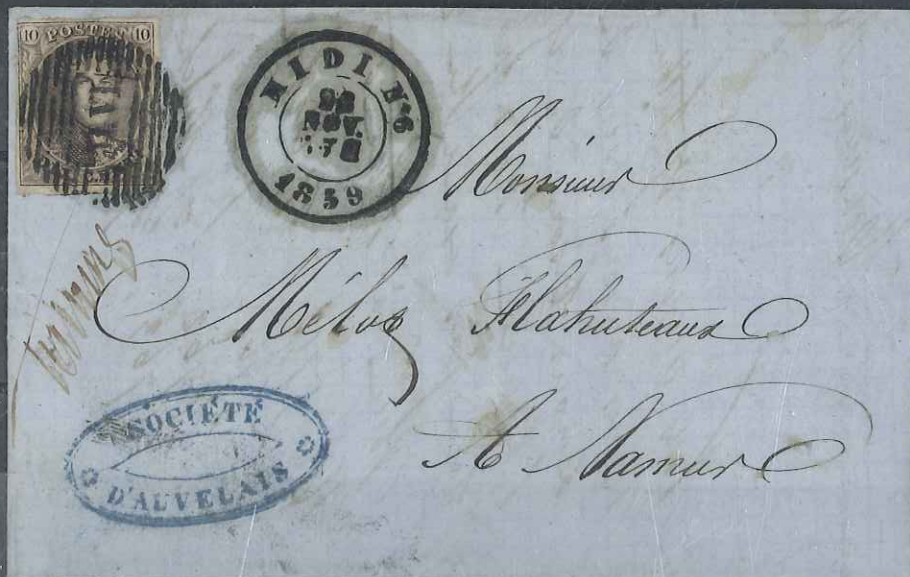 10 POSTES 10
MIDI N°6
22
NOV.
1859
Monsieur
Mélot
A Namur
SOCIÉTÉ
D'AUVELAIS